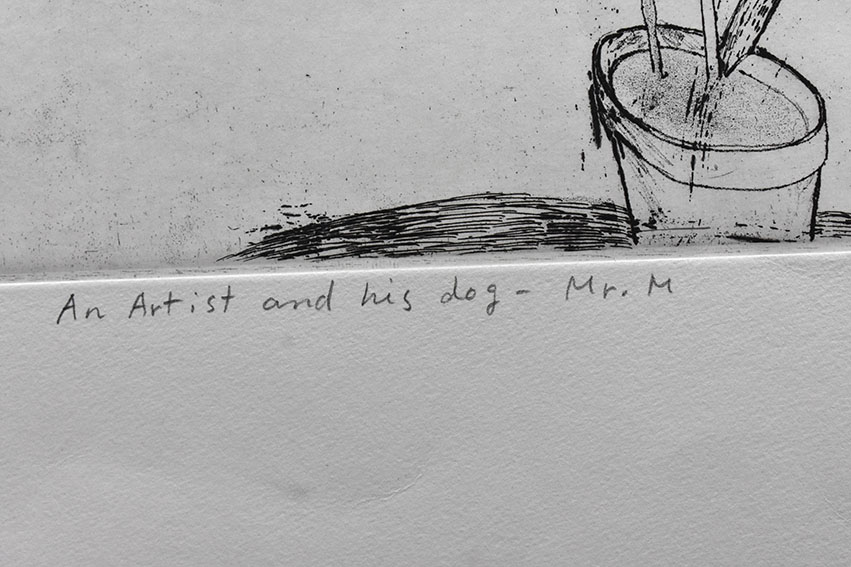 An Artist and his dog - Mr. M